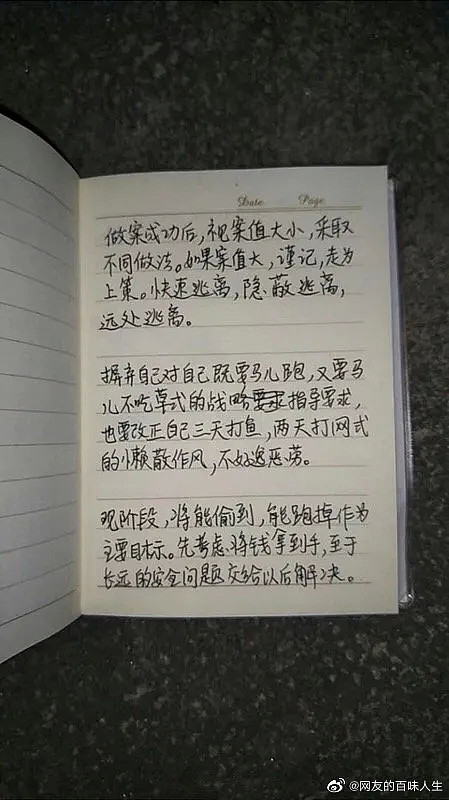 Date Page
做案成功后,视案值大小,采取
不同做法。如果案值大,谨记,走为
上策。快速逃离,隐蔽逃离,
远处逃离。
摒弃自己对自己既要马儿跑,又要马
儿不吃草式的战略要求指导要求,
也要改正自己三天打鱼,两天打网式
的懒散作风,不好逸恶劳。
现阶段,将能偷到,能跑掉作为
主要目标。先考虑将钱拿到手,至于
长远的安全问题交给以后解决。
@网友的百味人生